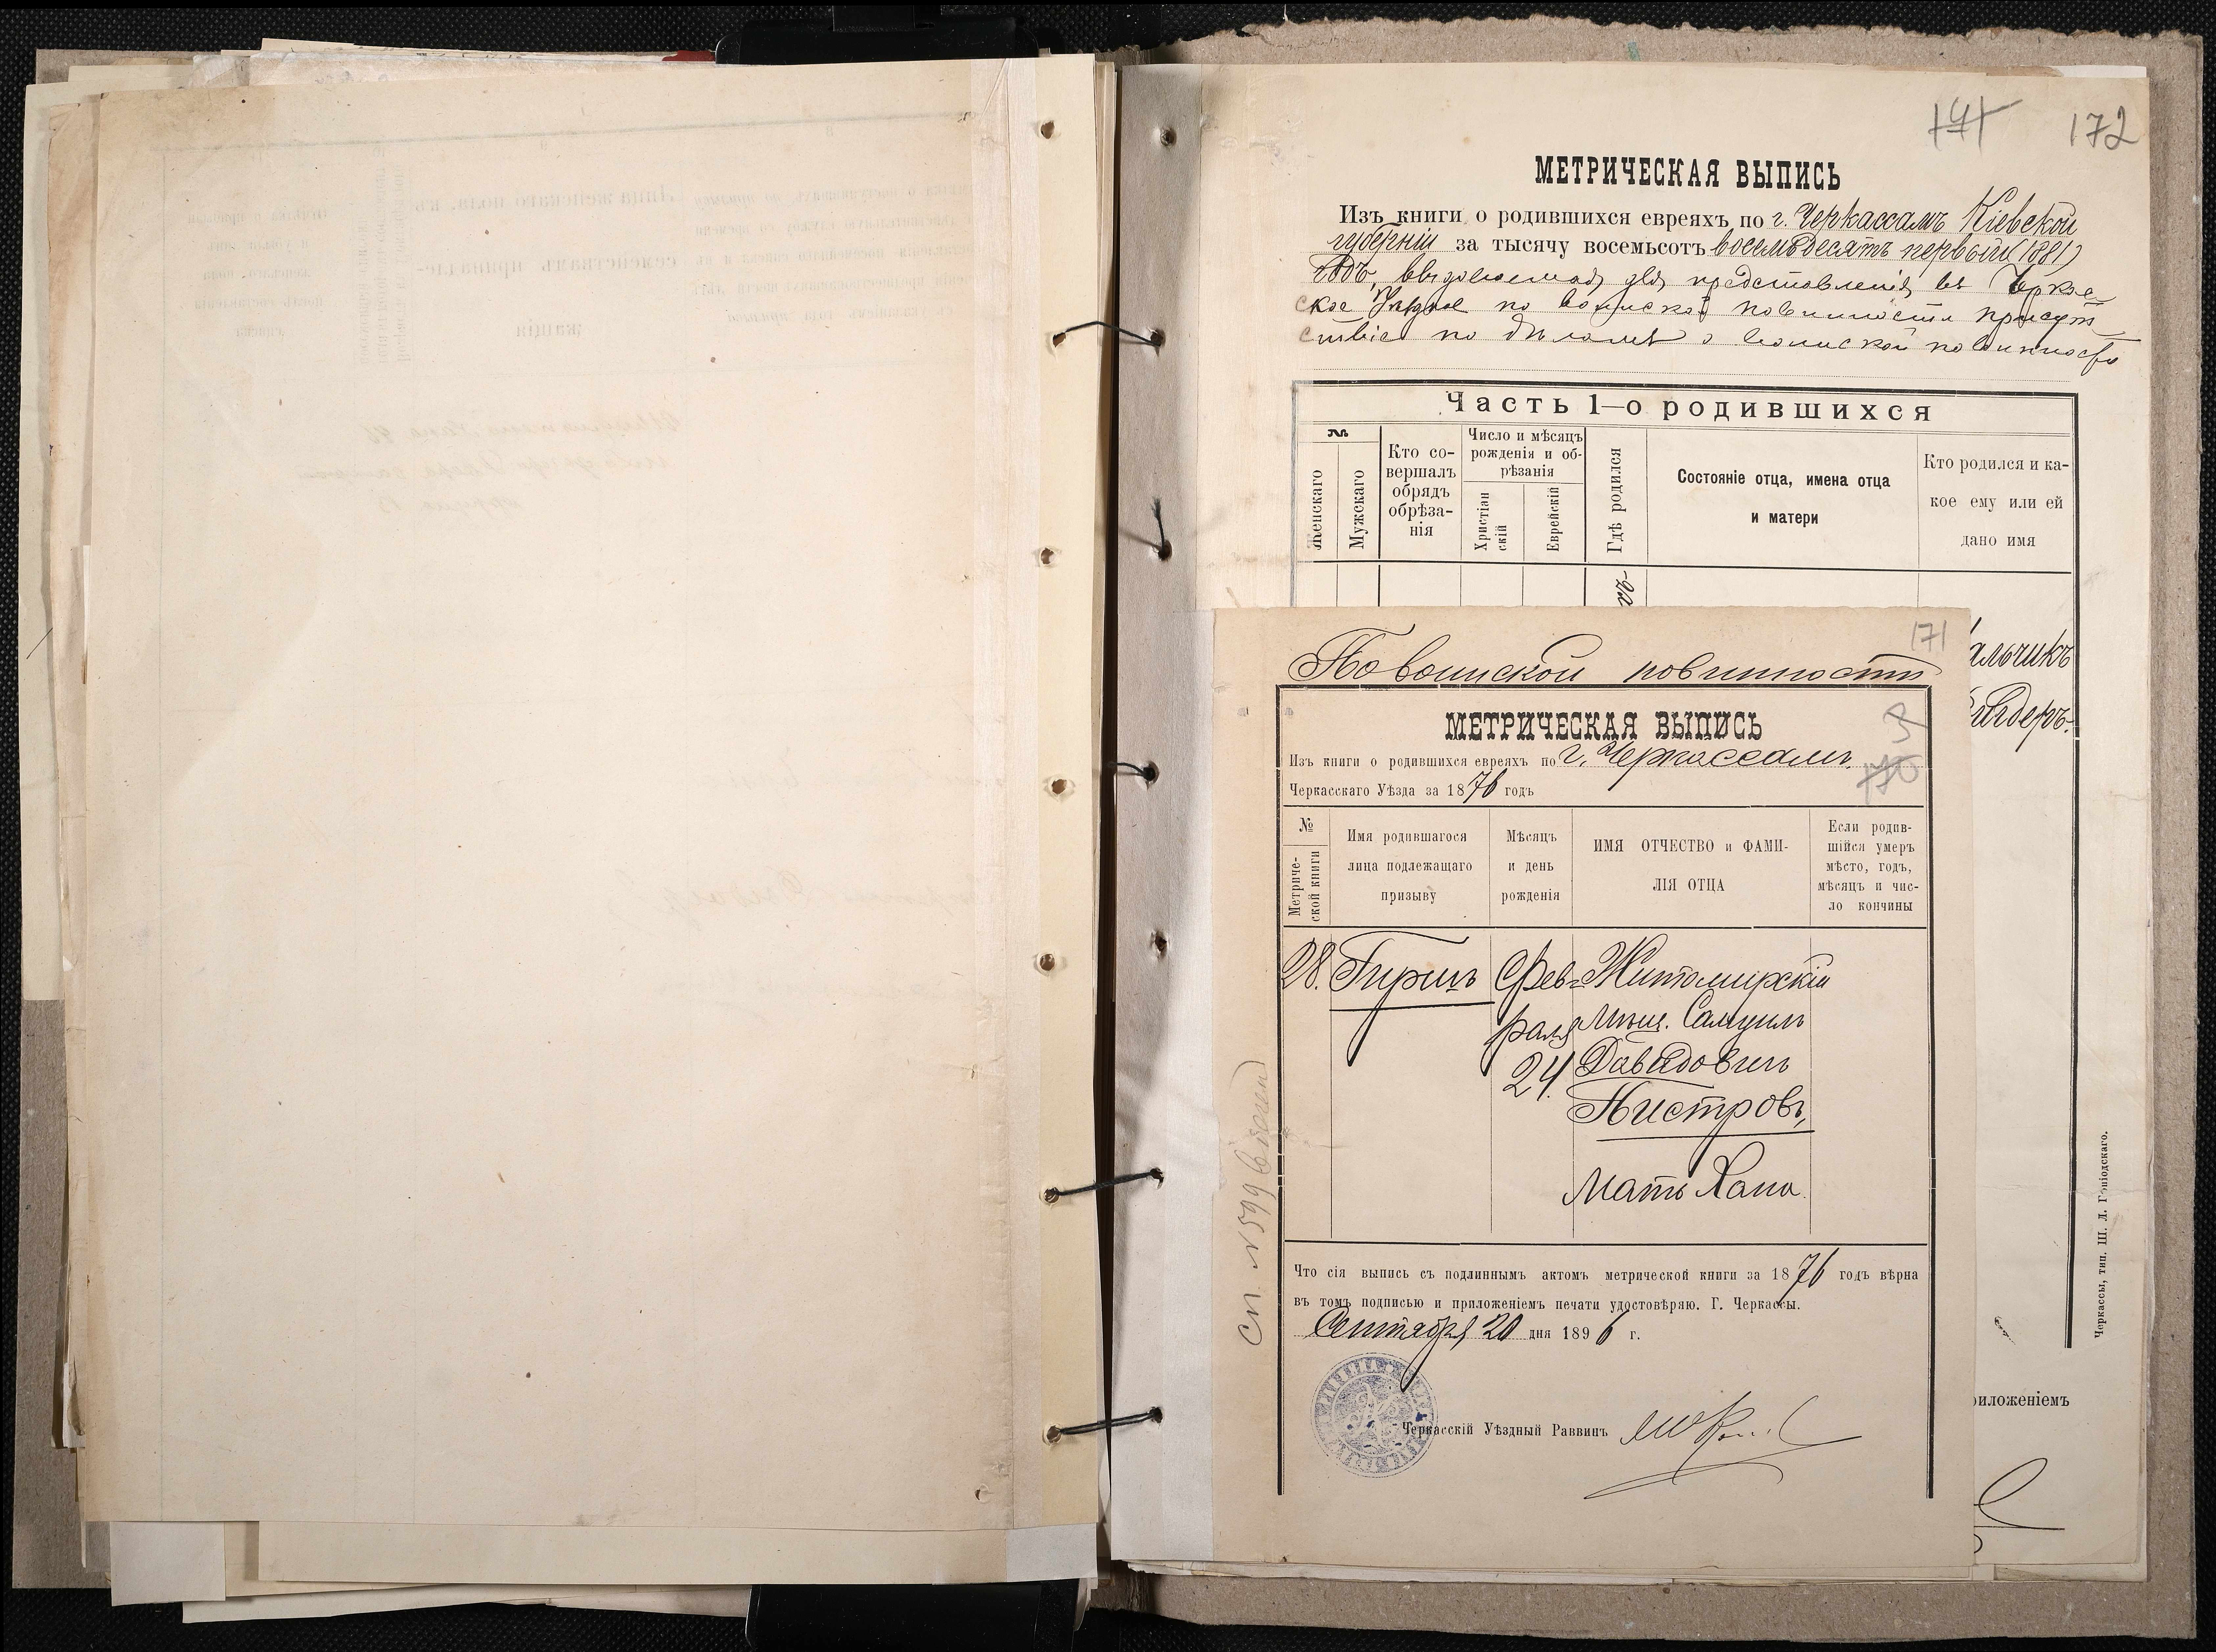 141 172
МЕТРИЧЕСКАЯ ВЫПИСЬ
Изъ книги о родившихся евреяхъ по г. Черкассамъ Кіевской
губерніи за тысячу восемьсотъ восемьдесятъ первый (1881)
годъ, выдаваемая для представленія въ Черкас
ское Уѣздное по воинской повинности присут
ствіе по дѣламъ о воинской повинности
Часть 1—о родившихся
№
Женскаго
Мужскаго
Кто со-
вершалъ
обрядъ
обрѣза-
нія
Число и мѣсяцъ
рожденія и об-
рѣзанія
Христіан
скій
Еврейскій
Гдѣ родился
Состояніе отца, имена отца
и матери
Кто родился и ка-
кое ему или ей
дано имя
альчикъ
171
По воинской повинности
МЕТРИЧЕСКАЯ ВЫПИСЬ
Изъ книги о родившихся евреяхъ по г. Черкассамъ
Черкасскаго Уѣзда за 1876 годъ
170
№
Метриче-
ской книги
Имя родившагося
лица подлежащаго
призыву
Мѣсяцъ
и день
рожденія
ИМЯ ОТЧЕСТВО и ФАМИ-
ЛІЯ ОТЦА
Если родив-
шійся умеръ
мѣсто, годъ,
мѣсяцъ и чис-
ло кончины
28. Гиршъ Фев- Житомирскій
раля Мѣщ. Самуилъ
24. Давидовичъ
Пистровъ,
Мать Хана.
Что сія выпись съ подлиннымъ актомъ метрической книги за 1876 годъ вѣрна
въ томъ подписью и приложеніемъ печати удостовѣряю. Г. Черкассы.
Сентября 20 дня 1896 г.
Черкасскій Уѣздный Раввинъ
Сп. № 599
риложеніемъ
Черкассы, тип. Ш. Л. Гоніодскаго.